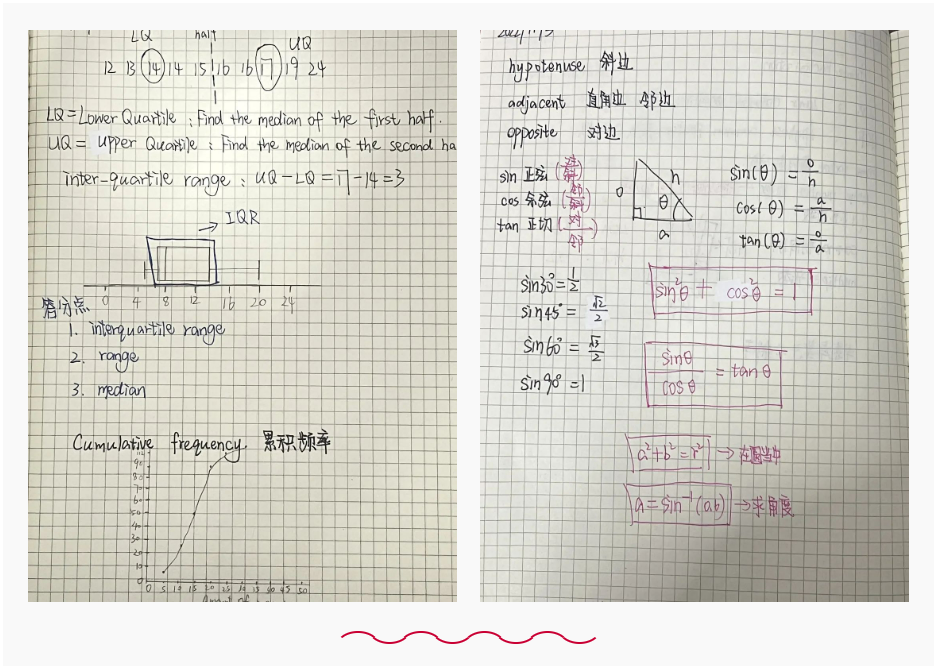 LQ half
UQ
12 13 14 14 15 16 16 17 19 24
LQ = Lower Quartile : Find the median of the first half.
UQ = upper Quartile : Find the median of the second ha
inter-quartile range : UQ - LQ = 17 - 14 = 3
→ IQR
0 4 8 12 16 20 24
1. interquartile range
2. range
3. median
Cumulative frequency 累积频率
90
80
70
60
50
40
30
20
10
0 5 10 15 20 25 30 35 40 45 50
hypotenuse 斜边
adjacent 直角边 邻边
opposite 对边
sin 正弦 (对/斜)
cos 余弦 (邻/斜)
tan 正切 (对/邻)
o h θ a
sin(θ) = o/h
cos(θ) = a/h
tan(θ) = o/a
sin30° = 1/2
sin45° = √2/2
sin60° = √3/2
sin90° = 1
sin²θ + cos²θ = 1
sinθ/cosθ = tanθ
a²+b²=r² →
a = sin⁻¹(ab) → 求角度